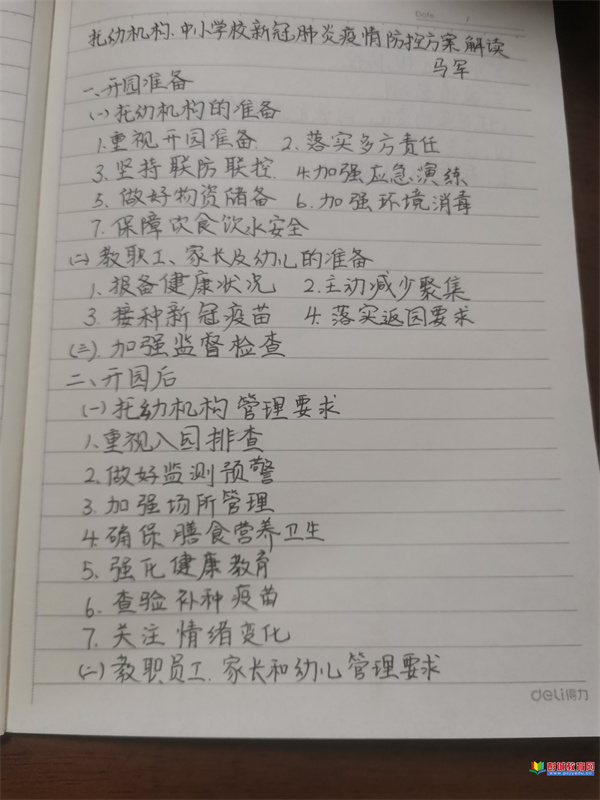 Date
托幼机构、中小学校新冠肺炎疫情防控方案解读
马军
一、开园准备
(一)托幼机构的准备
1.重视开园准备. 2.落实多方责任
3.坚持联防联控. 4.加强应急演练
5.做好物资储备 6.加强环境消毒
7.保障饮食饮水安全
(二)教职工、家长及幼儿的准备
1.报备健康状况 2.主动减少聚集
3.接种新冠疫苗 4.落实返园要求
(三).加强监督检查
二、开园后
(一)托幼机构管理要求
1.重视入园排查
2.做好监测预警
3.加强场所管理
4.确保膳食营养卫生
5.强化健康教育
6.查验补种疫苗
7.关注情绪变化
(二)教职员工.家长和幼儿管理要求
deli得力
彭城教育网